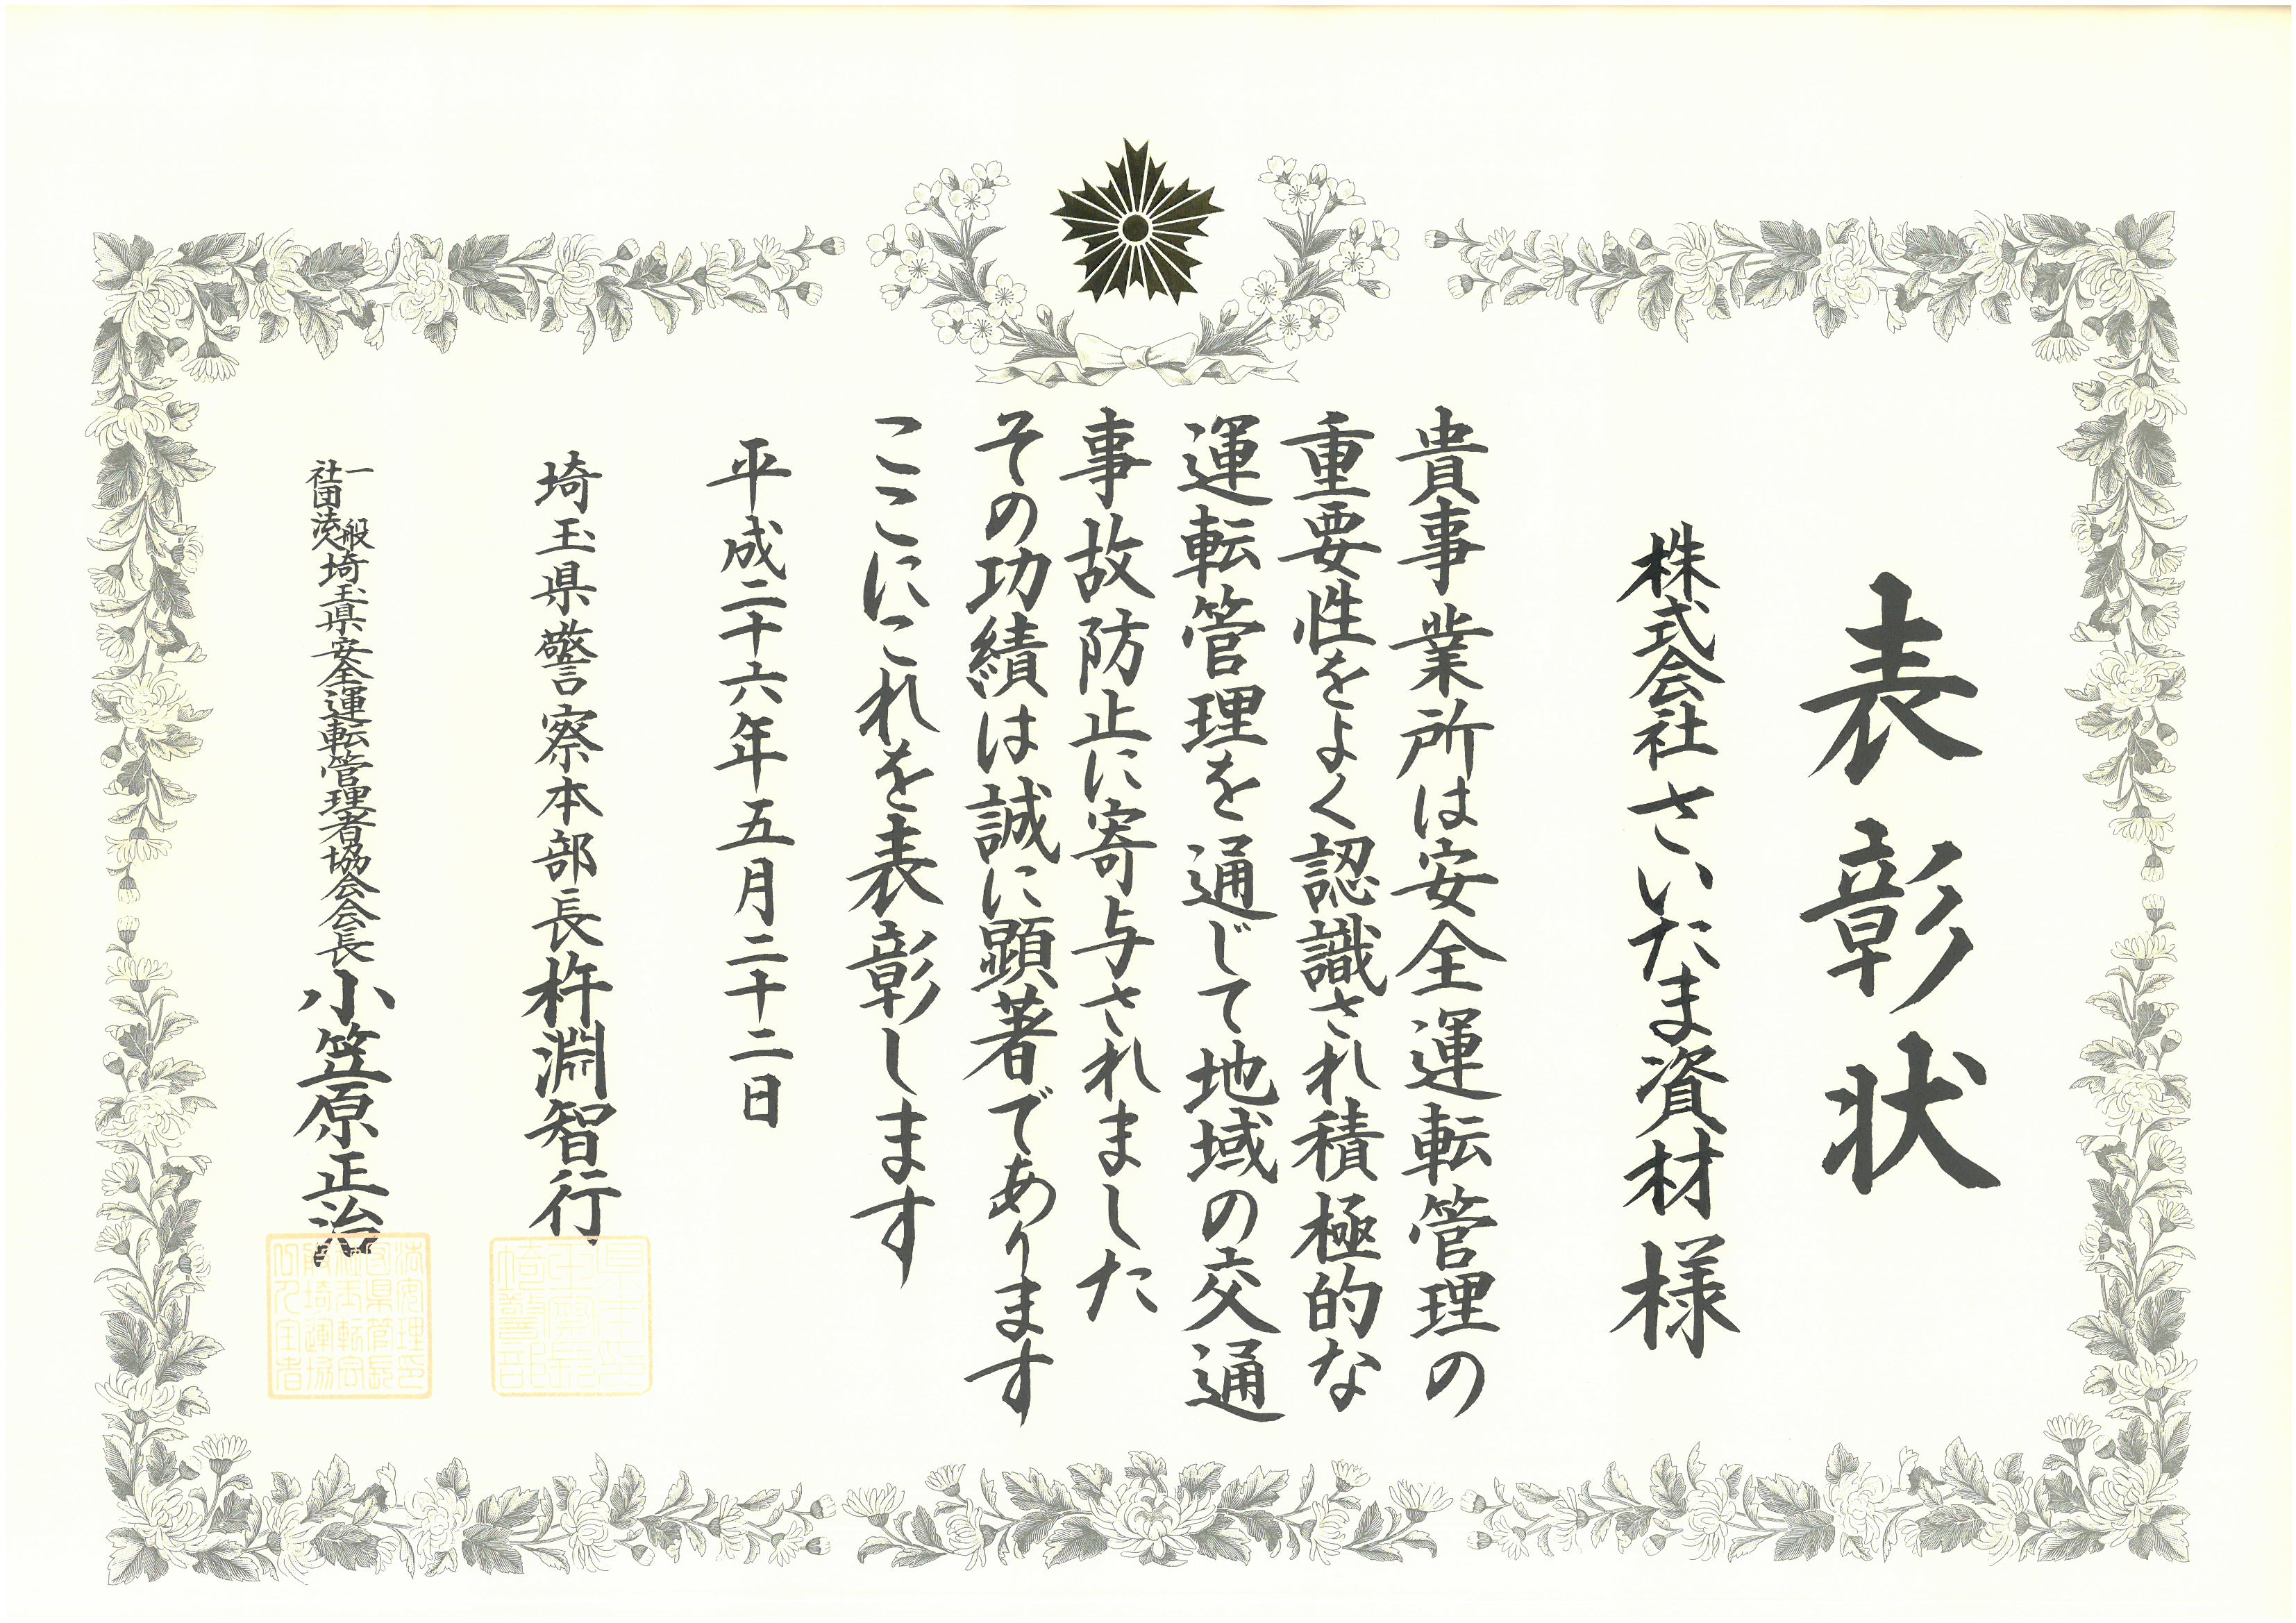 表彰状
株式会社さいたま資材様
貴事業所は安全運転管理の
重要性をよく認識され積極的な
運転管理を通じて地域の交通
事故防止に寄与されました
その功績は誠に顕著であります
ここにこれを表彰します
平成二十六年五月二十二日
埼玉県警察本部長杵淵智行
一般社団法人埼玉県安全運転管理者協会会長小笠原正治